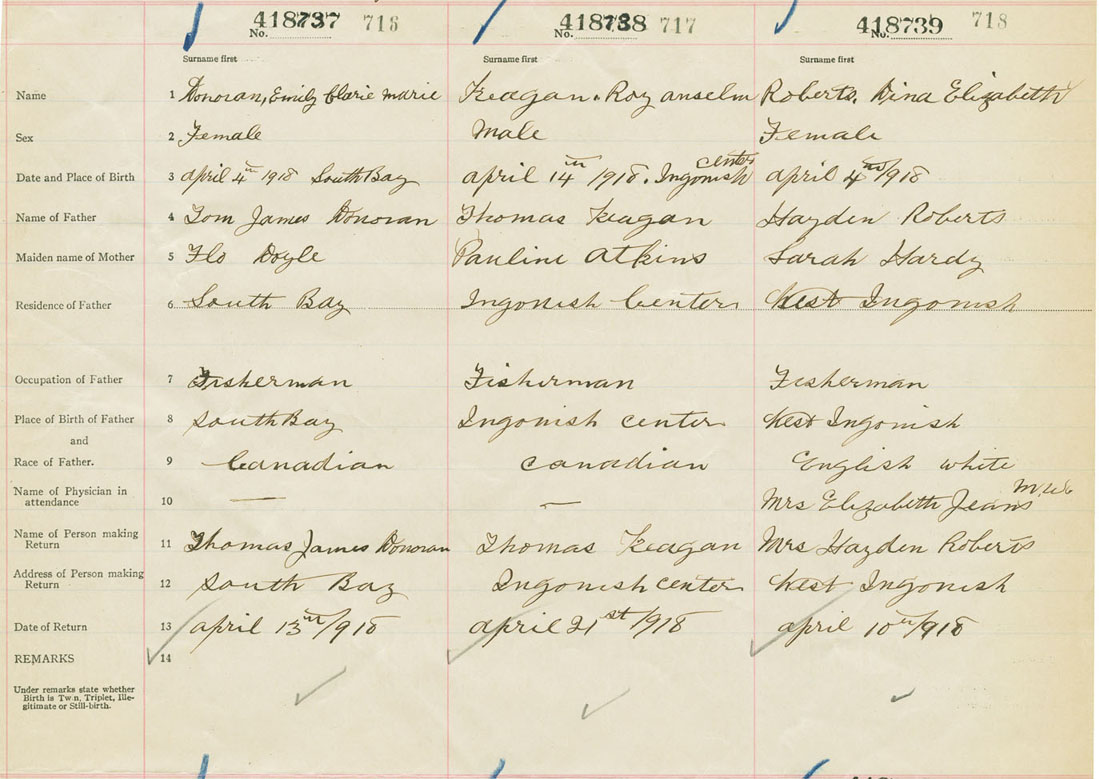 418737 716 418738 717 418739 718
No. No. No.
Surname first Surname first Surname first
Name 1 Donovan, Emily Clarie Marie Keagan. Roy Anselm Roberts. Dina Elizabeth
Sex 2 Female Male Female
Center
Date and Place of Birth 3 April 4th 1918 South Bay April 14th /1918. Ingonish April 4th /1918
Name of Father 4 Tom James Donovan Thomas Keagan Hayden Roberts
Maiden name of Mother 5 Flo Doyle Pauline Atkins Sarah Hardy
Residence of Father 6 South Bay Ingonish Center West Ingonish
Occupation of Father 7 Fisherman Fisherman Fisherman
Place of Birth of Father 8 South Bay Ingonish Center West Ingonish
and
Race of Father. 9 Canadian Canadian English white
Name of Physician in
attendance 10 — — Mrs Elizabeth Jeans
Name of Person making
Return 11 Thomas James Donovan Thomas Keagan Mrs Hayden Roberts
Address of Person making
Return 12 South Bay Ingonish Center West Ingonish
Date of Return 13 April 13th /918 April 21st /918 April 10th /918
REMARKS 14
Under remarks state whether
Birth is Twin, Triplet, Ille-
gitimate or Still-birth.